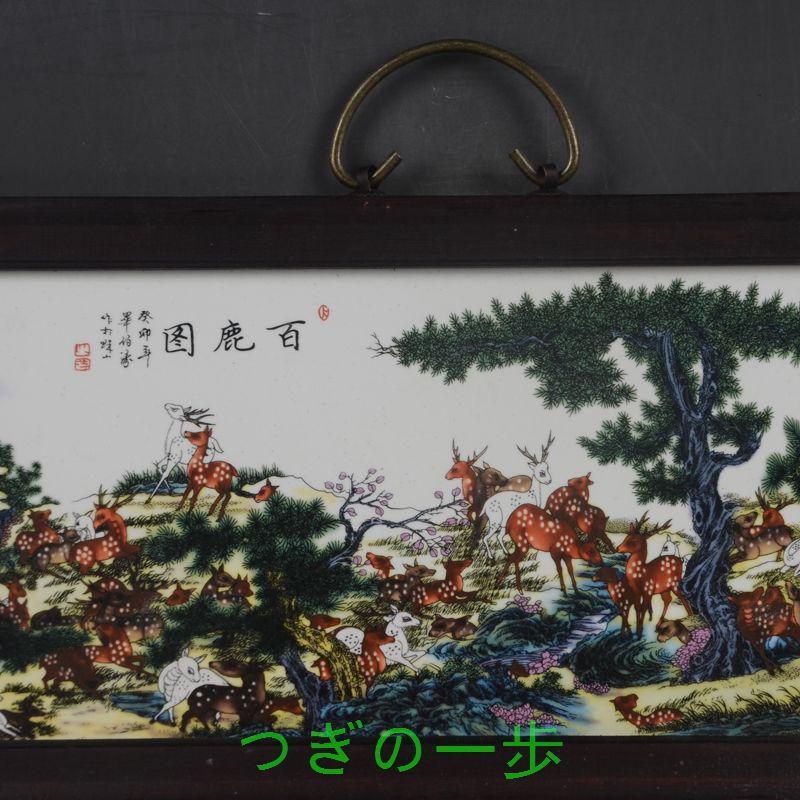 百鹿图
癸卯年
畢伯涛
作於珠山
つぎの一歩